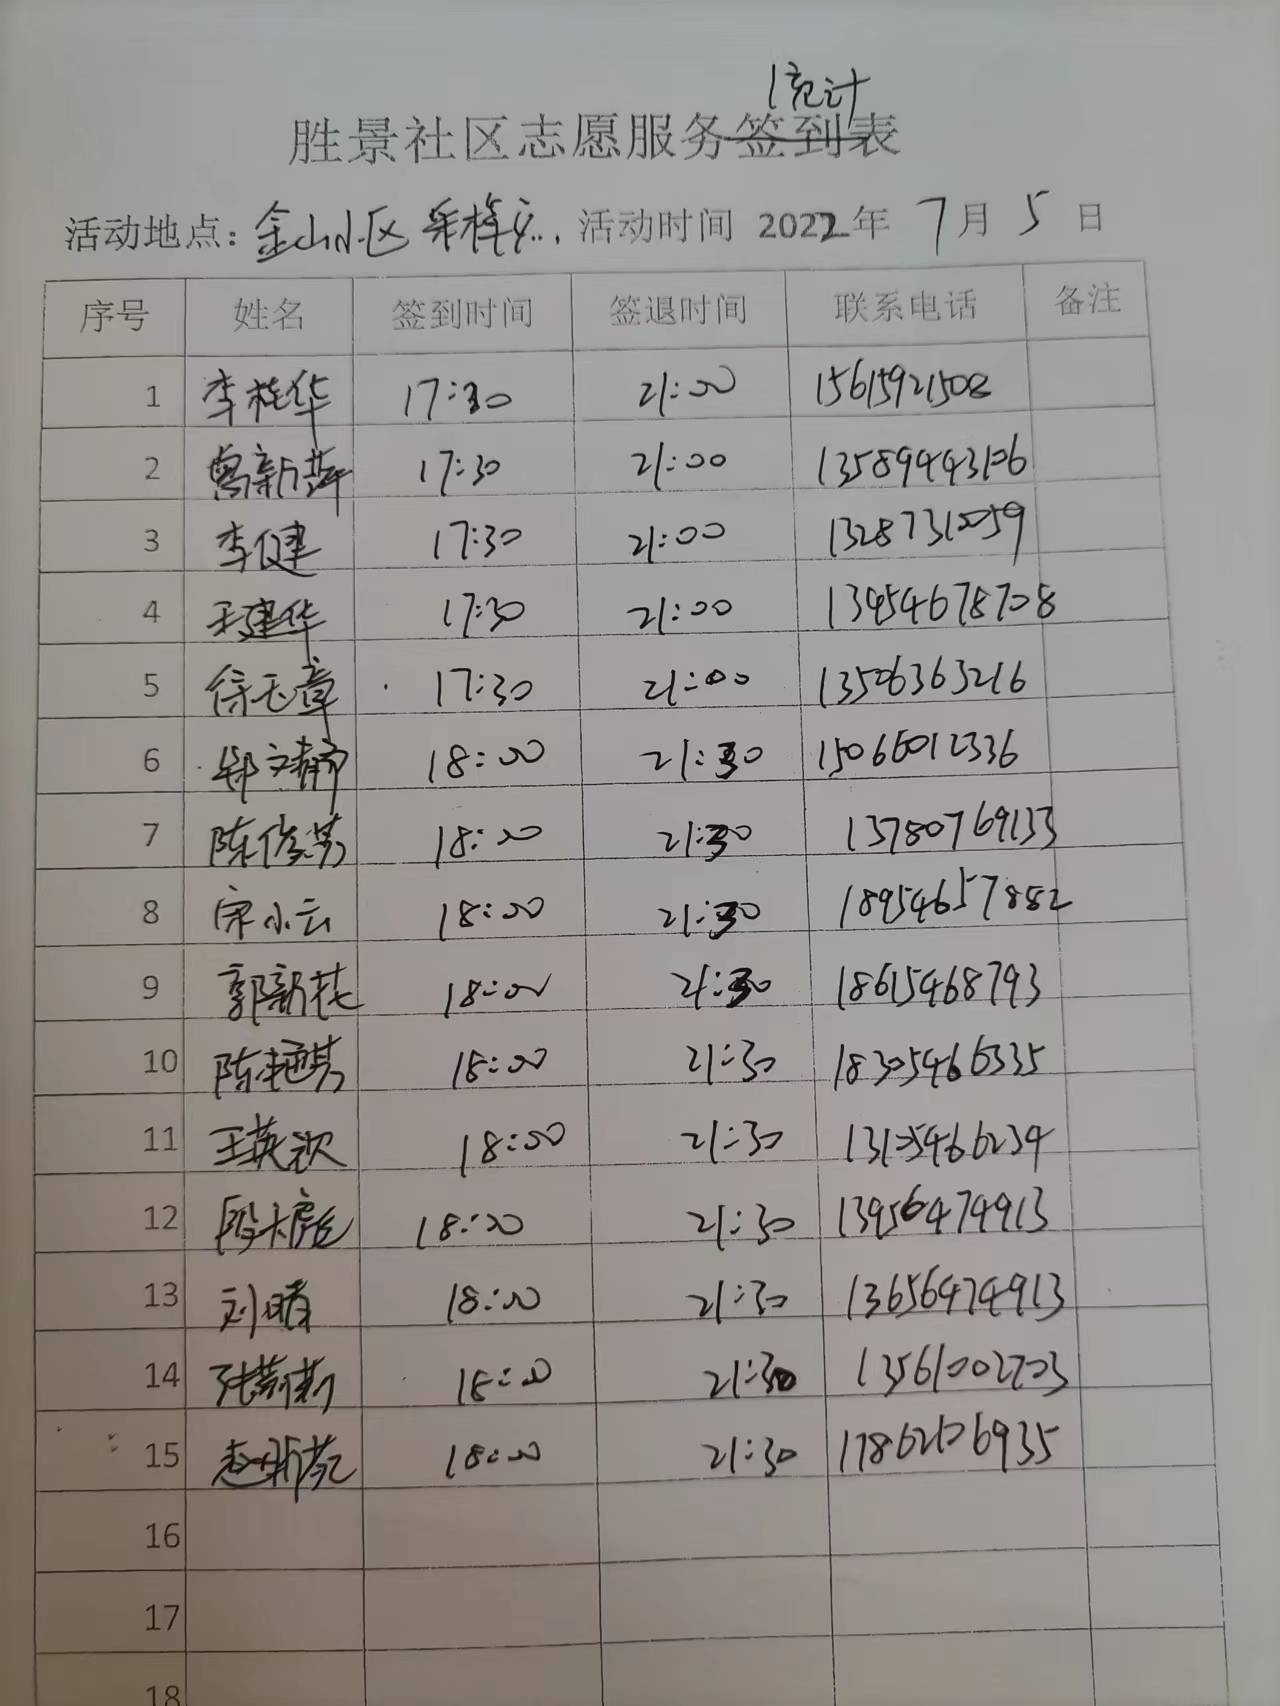 统计
胜景社区志愿服务签到表
活动地点: 金山小区 采样点. 活动时间 2022年 7月 5日
序号 姓名 签到时间 签退时间 联系电话 备注
1 李桂华 17:30 21:00 15615921508
2 17:30 21:00 13589443106
3 李健 17:30 21:00 13287310059
4 王建华 17:30 21:00 13454678708
5 徐玉章 17:30 21:00 13506363216
6 郑文静 18:00 21:30 15066012336
7 陈俊芳 18:00 21:30 13780769133
8 宋小云 18:00 21:30 18954657882
9 郭新花 18:00 21:30 18615468793
10 陈艳芳 18:00 21:30 18305466335
11 王英钦 18:00 21:30 13105466234
12 18:00 21:30 13956474913
13 刘晴 18:00 21:30 13656474913
14 18:00 21:30 13561002703
15 18:00 21:30 17862106935
16
17
18